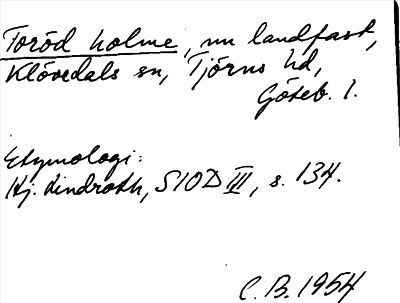 Toröd holme, nu landfast,
Klövedals sn, Tjörns hd,
Göteb. l.
Etymologi:
Hj. Lindroth, SIOD III, s. 134.
C.B. 1954